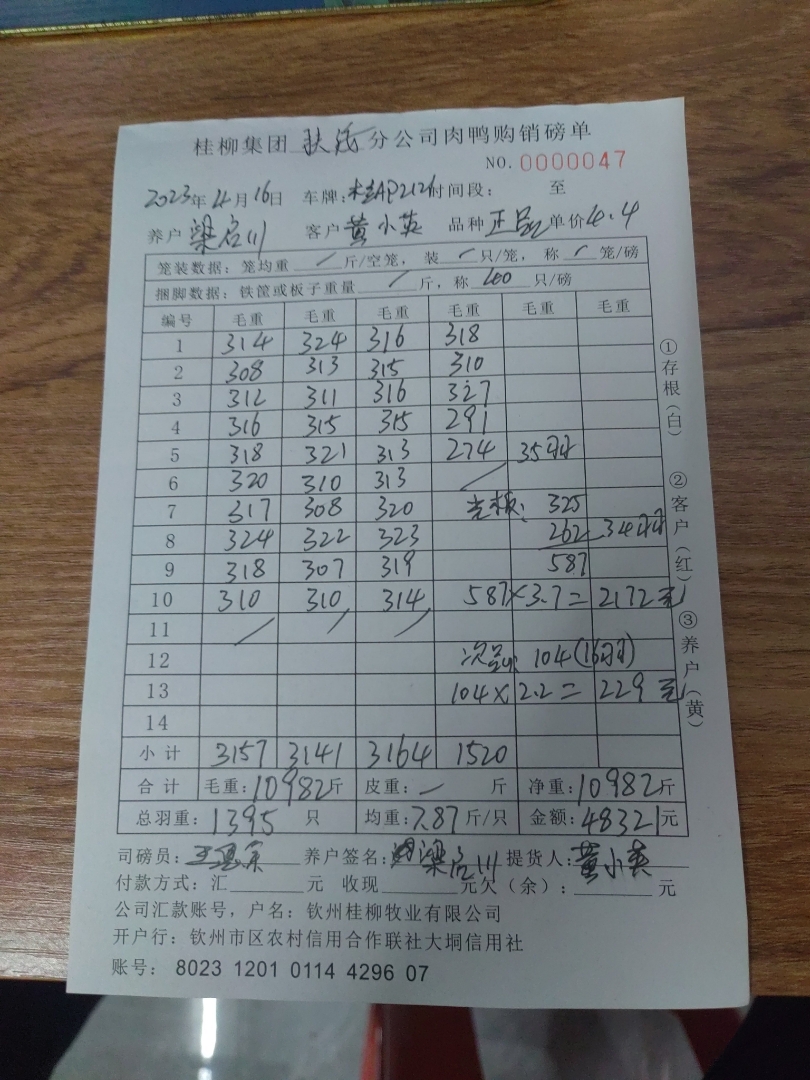 桂柳集团 扶绥 分公司肉鸭购销磅单
NO. 0000047
2023年4月16日 车牌:桂AP2121 时间段: 至
养户 梁启川 客户 黄小英 品种 正品 单价 4.4
笼装数据: 笼均重 / 斤/空笼, 装 / 只/笼, 称 / 笼/磅
捆脚数据: 铁筐或板子重量 / 斤, 称 40 只/磅
编号 毛重 毛重 毛重 毛重 毛重 毛重
1 314 324 316 318
2 308 313 315 310
3 312 311 316 327
4 316 315 315 291
5 318 321 313 274 35羽
6 320 310 313 /
7 317 308 320 325
8 324 322 323 262 34羽
9 318 307 319 587
10 310 310 314 587×3.7=2172元
11 / / /
12 次品: 104(16羽)
13 104×2.2=229元
14
小计 3157 3141 3164 1520
合计 毛重:10982斤 皮重: — 斤 净重:10982斤
总羽重: 1395 只 均重:7.87斤/只 金额:48321元
司磅员: 养户签名: 梁启川 提货人: 黄小英
付款方式: 汇 元 收现 元欠(余): 元
公司汇款账号, 户名: 钦州桂柳牧业有限公司
开户行: 钦州市区农村信用合作联社大垌信用社
账号: 8023 1201 0114 4296 07
①存根(白) ②客户(红) ③养户(黄)